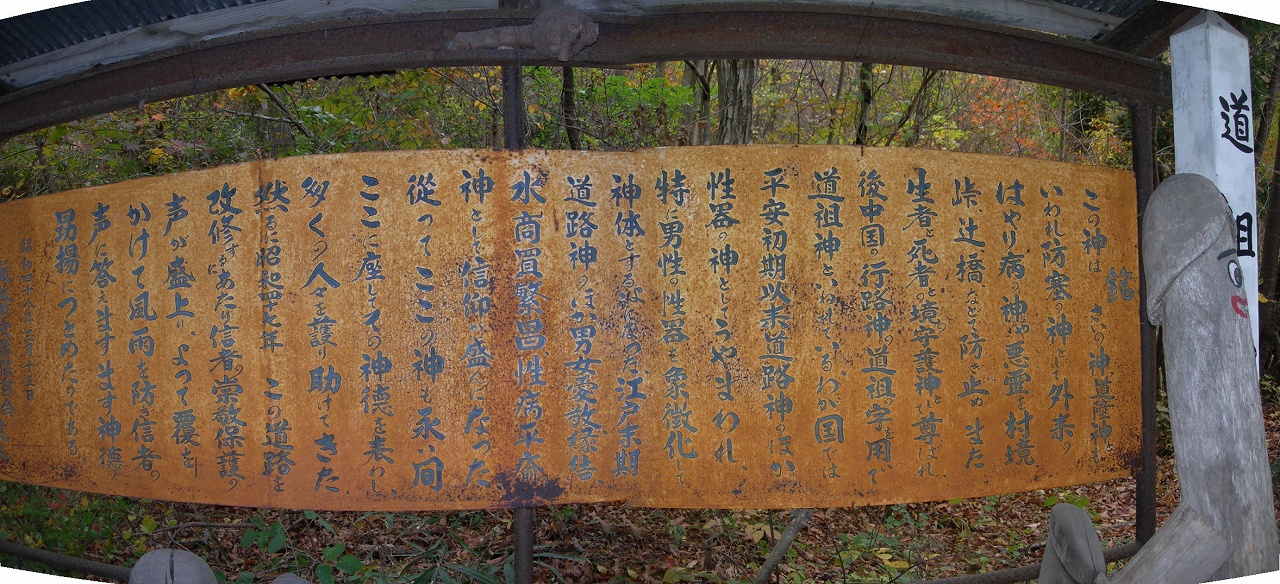 道祖
この神は、さいの神、道陸神とも
いわれ防塞の神として外来の
はやり病の神や悪霊を村境
峠、辻、橋などで防ぎ止めまた
生者と死者の境守護神と尊ばれ
後中国の行路神の道祖の字を用いて
道祖神といわれているわが国では
平安初期以来道路神のほか
性器の神としてうやまわれ、
特に男性の性器を象徴化して
神体とする江戸末期
道路神のほか男女愛敬縁結、
水商買繁昌、性病平癒
神として信仰が盛んになった
従ってここの神も永い間
ここに座してその神徳を表わし
多くの人々を護り助けてきた
然るに昭和四十七年この道路を
改修するにあたり信者の崇敬保護の
声が盛上り、よって覆を
かけて風雨を防ぎ信者の
声に答えますます神徳
昂揚につとめたのである
昭和四十八年三月十五日